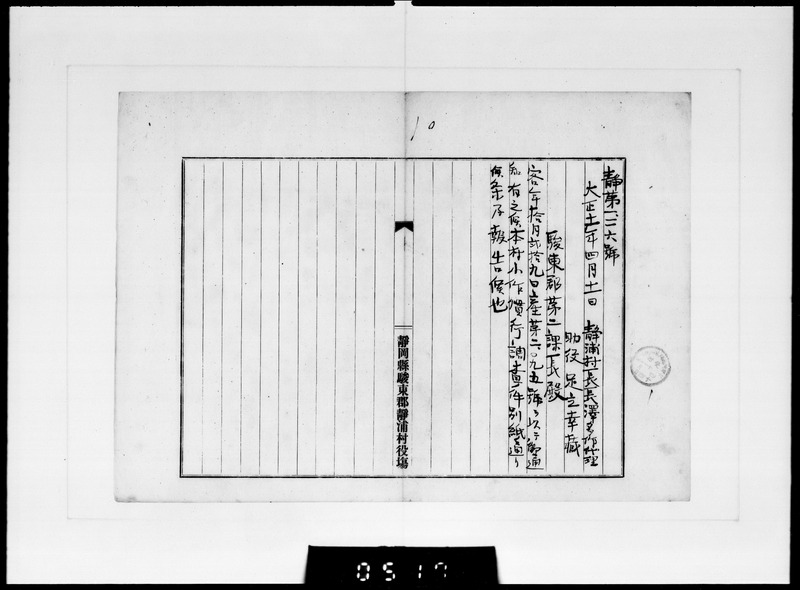 10
靜第一二六號
大正十一年四月十一日
靜浦村長長澤 代理
助役 足立幸藏
駿東郡第二課長殿
客年拾月弐拾九日産第二〇九五號ヲ以テ御通
知有之候本村小作慣行調査ノ件別紙ノ通リ
候条及報告候也
靜岡縣駿東郡靜浦村役場
0517